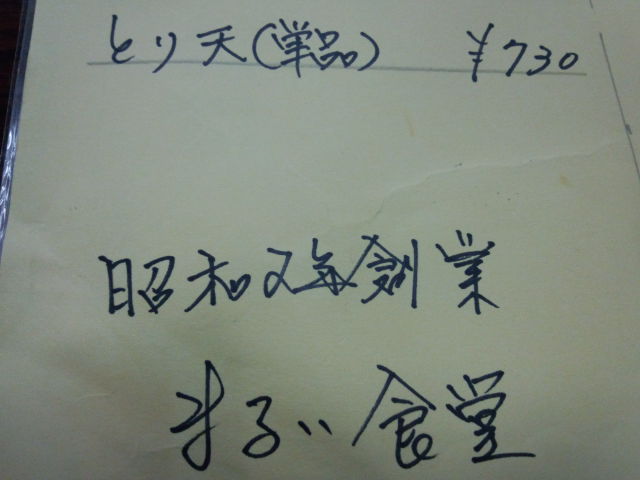 とり天(単品) ¥730
昭和2年創業
まるい食堂